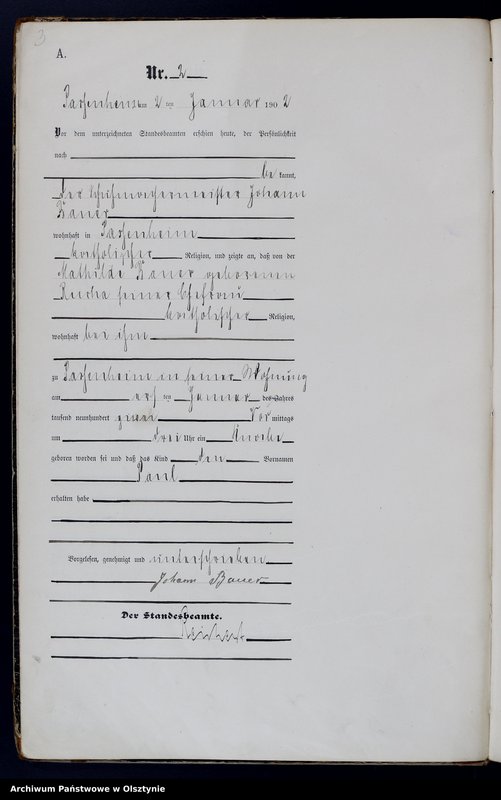 3
A.
Nr. 2
Passenheim am 2 ten Januar 1902
Vor dem unterzeichneten Standesbeamten erschien heute, der Persönlichkeit
nach
be kannt,
der Schuhmachermeister Johann
Bauer
wohnhaft in Passenheim
katholischer Religion, und zeigte an, daß von der
Mathilde Bauer geborenen
seiner Ehefrau
katholischer Religion,
wohnhaft bei ihm
zu Passenheim in seiner Wohnung
am ersten Januar des Jahres
tausend neunhundert zwei Vor mittags
um drei Uhr ein Knabe
geboren worden sei und daß das Kind den Vornamen
Paul
erhalten habe
Vorgelesen, genehmigt und unterschrieben
Johann Bauer
Der Standesbeamte.
Archiwum Państwowe w Olsztynie